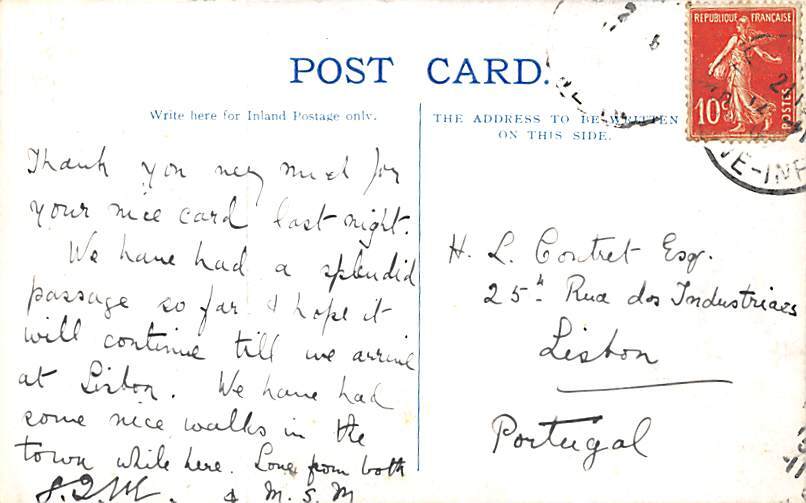 POST CARD.
Write here for Inland Postage only.
THE ADDRESS TO BE WRITTEN
ON THIS SIDE.
REPUBLIQUE FRANÇAISE
10c
POSTES
Thank you very much for
your nice card last night.
We have had a splendid
passage so far & hope it
will continue till we arrive
at Lisbon. We have had
some nice walks in the
town while here. Love from both
& M.S.M
H. L. Contret Esq.
25 Rua dos Industriaes
Lisbon
Portugal